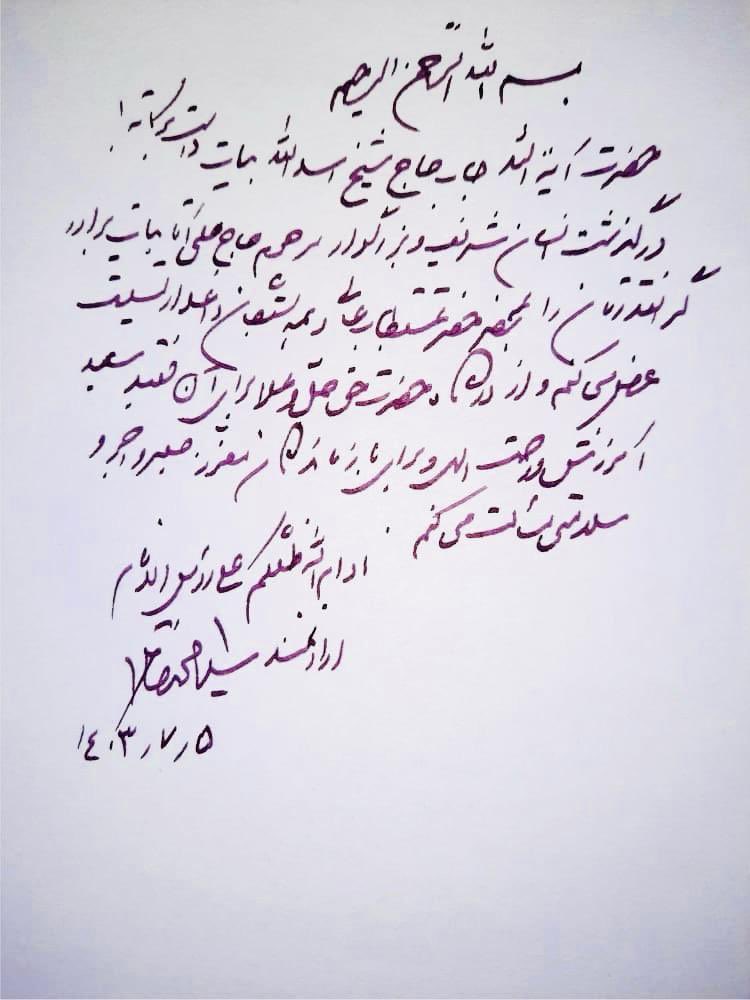 بسم الله الرحمن الرحیم
حضرت آیة الله جناب حاج شیخ اسدالله بیات دامت برکاته!
درگذشت انسان شریف و بزرگوار مرحوم حاج علی آقا بیات برادر
گرانقدرتان را به محضر حضرتمستطابعالی و همه بستگان داغدار تسلیت
عرض می‌کنم و از درگاه حضرت حق جلّ و علا برای آن فقید سعید
آمرزش و رحمت الهی و برای بازماندگان معزز صبر و اجر و
سلامتی مسألت می‌کنم.
ادام الله ظلکم علی رؤس الانام
ارادتمند سید محمد خاتمی
۱۴۰۳ر۷ر۵